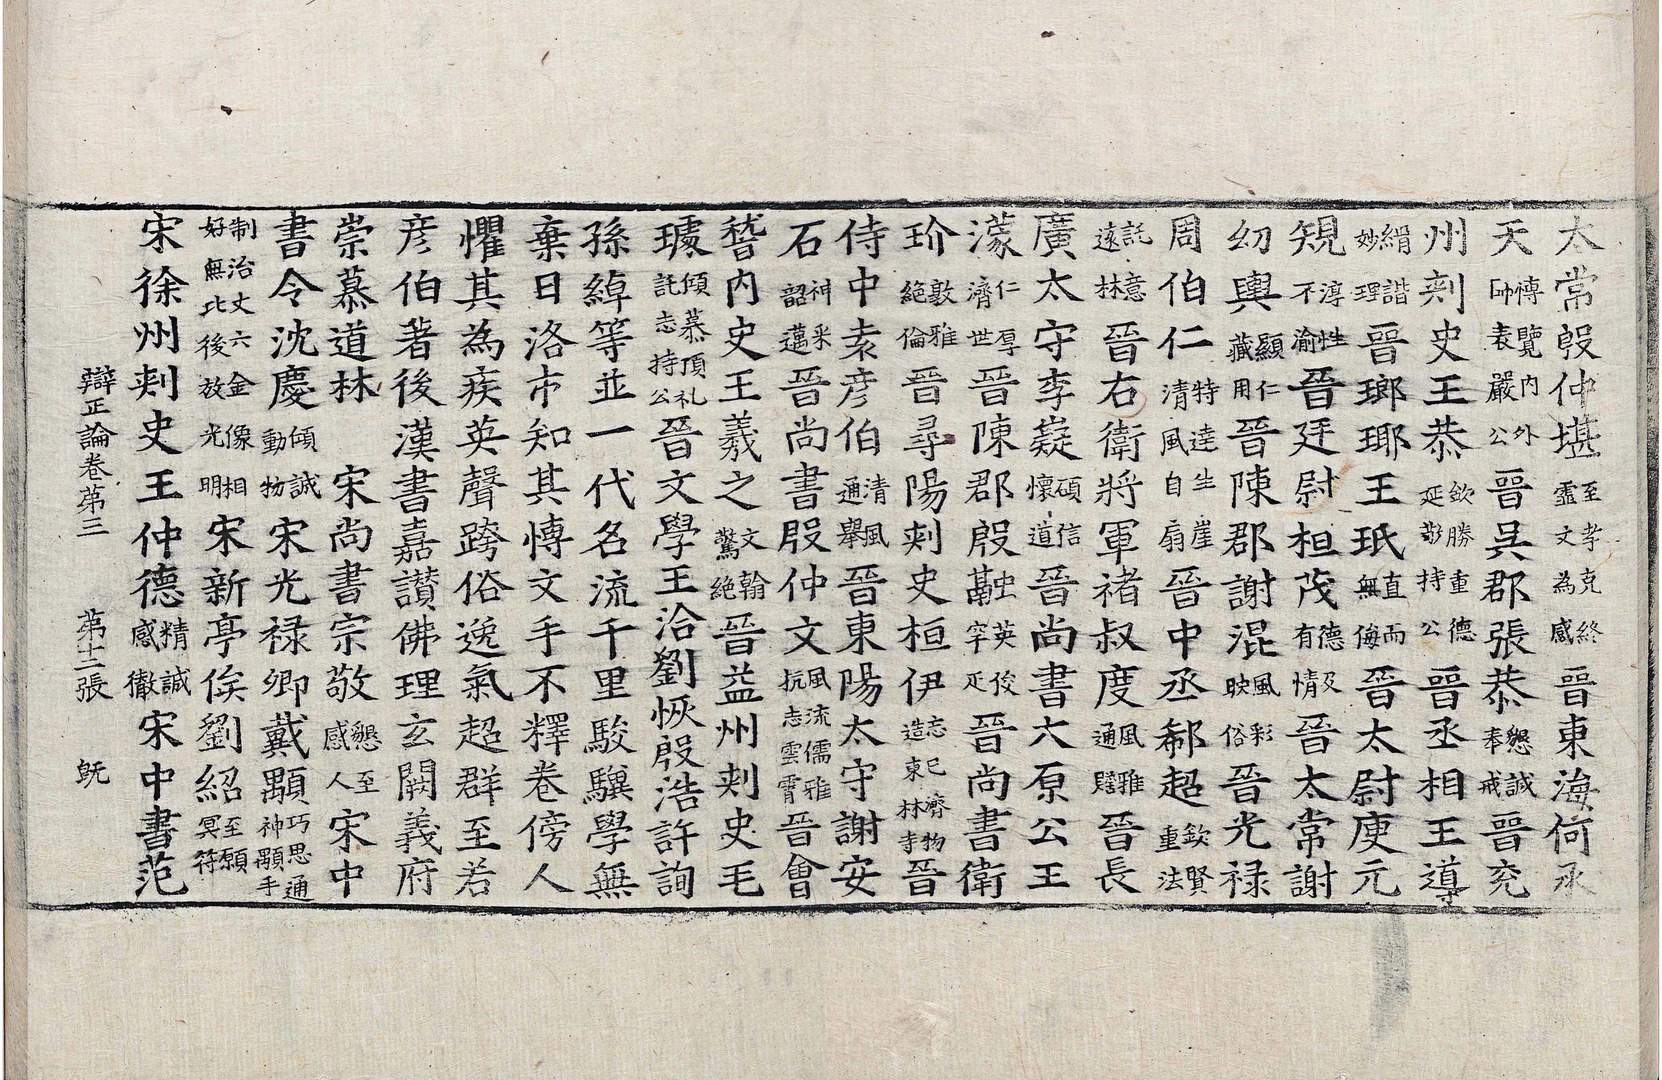 太常殷仲堪至孝克終靈文為感晉東海何承
天博覽內外師表嚴公晉吳郡張恭懇誠奉戒晉兖
州刾史王恭欽勝重德延敬持公晉丞相王導
絹諧妙理晉瑯琊王珉直而無侮晉太尉庾元
規淳性不渝晉廷尉桓茂德及有情晉太常謝
幼輿顯仁藏用晉陳郡謝混風彩映俗晉光禄
周伯仁特達生崖清風自扇晉中丞郗超欽賢重法
託意遠林晉右衛將軍褚叔度風雅通贍晉長
廣太守李嶷碩信懷道晉尚書大原公王
濛仁厚濟世晉陳郡殷蠿英俊罕疋晉尚書衛
玠敦雅絕倫晉尋陽刾史桓伊忘己濟物造東林寺晉
侍中袁彦伯清風通舉晉東陽太守謝安
石神采韶邁晉尚書殷仲文風流儒雅抗志雲霄晉會
嵇內史王羲之文翰驚絕晉益州刾史毛
璩傾慕頂礼託志持公晉文學王洽劉恢殷浩許詢
孫綽等並一代名流千里駿驥學無
棄日洛市知其博文手不釋卷傍人
懼其為疾英聲跨俗逸氣超群至若
彦伯著後漢書嘉讃佛理玄闕義府
崇慕道林　宋尚書宗敬懇至感人宋中
書令沈慶傾誠動物宋光禄卿戴顒巧思通神顒手
制治丈六金像相好無比後放光明宋新亭俟劉紹至願冥符
宋徐州刾史王仲德精誠感徹宋中書范
辯正論卷第三　第十二張　旣